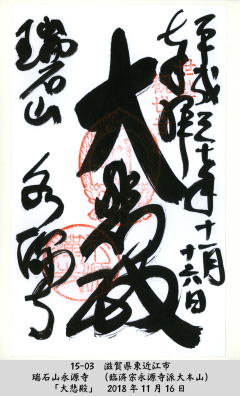 平成三十年十一月
十六日
奉拝
大悲殿
瑞石山
永源寺
15-03　滋賀県東近江市
瑞石山永源寺　（臨済宗永源寺派大本山）
「大悲殿」　2018年11月16日